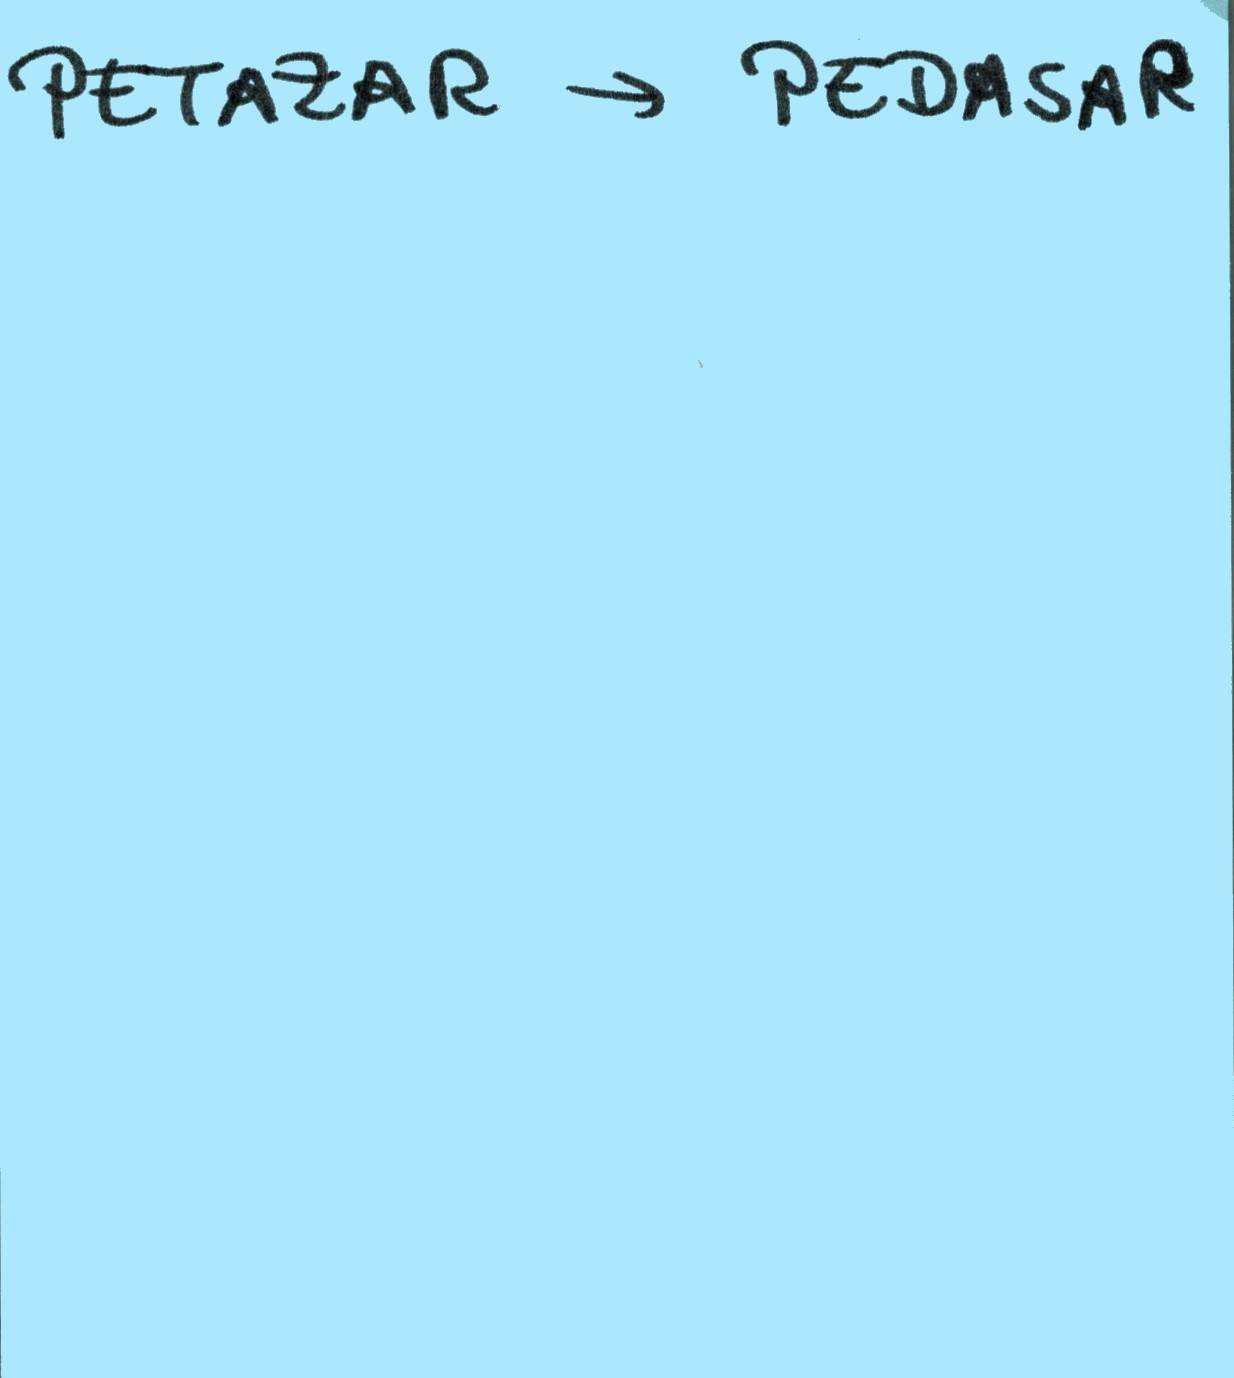 PETAZAR → PEDASAR